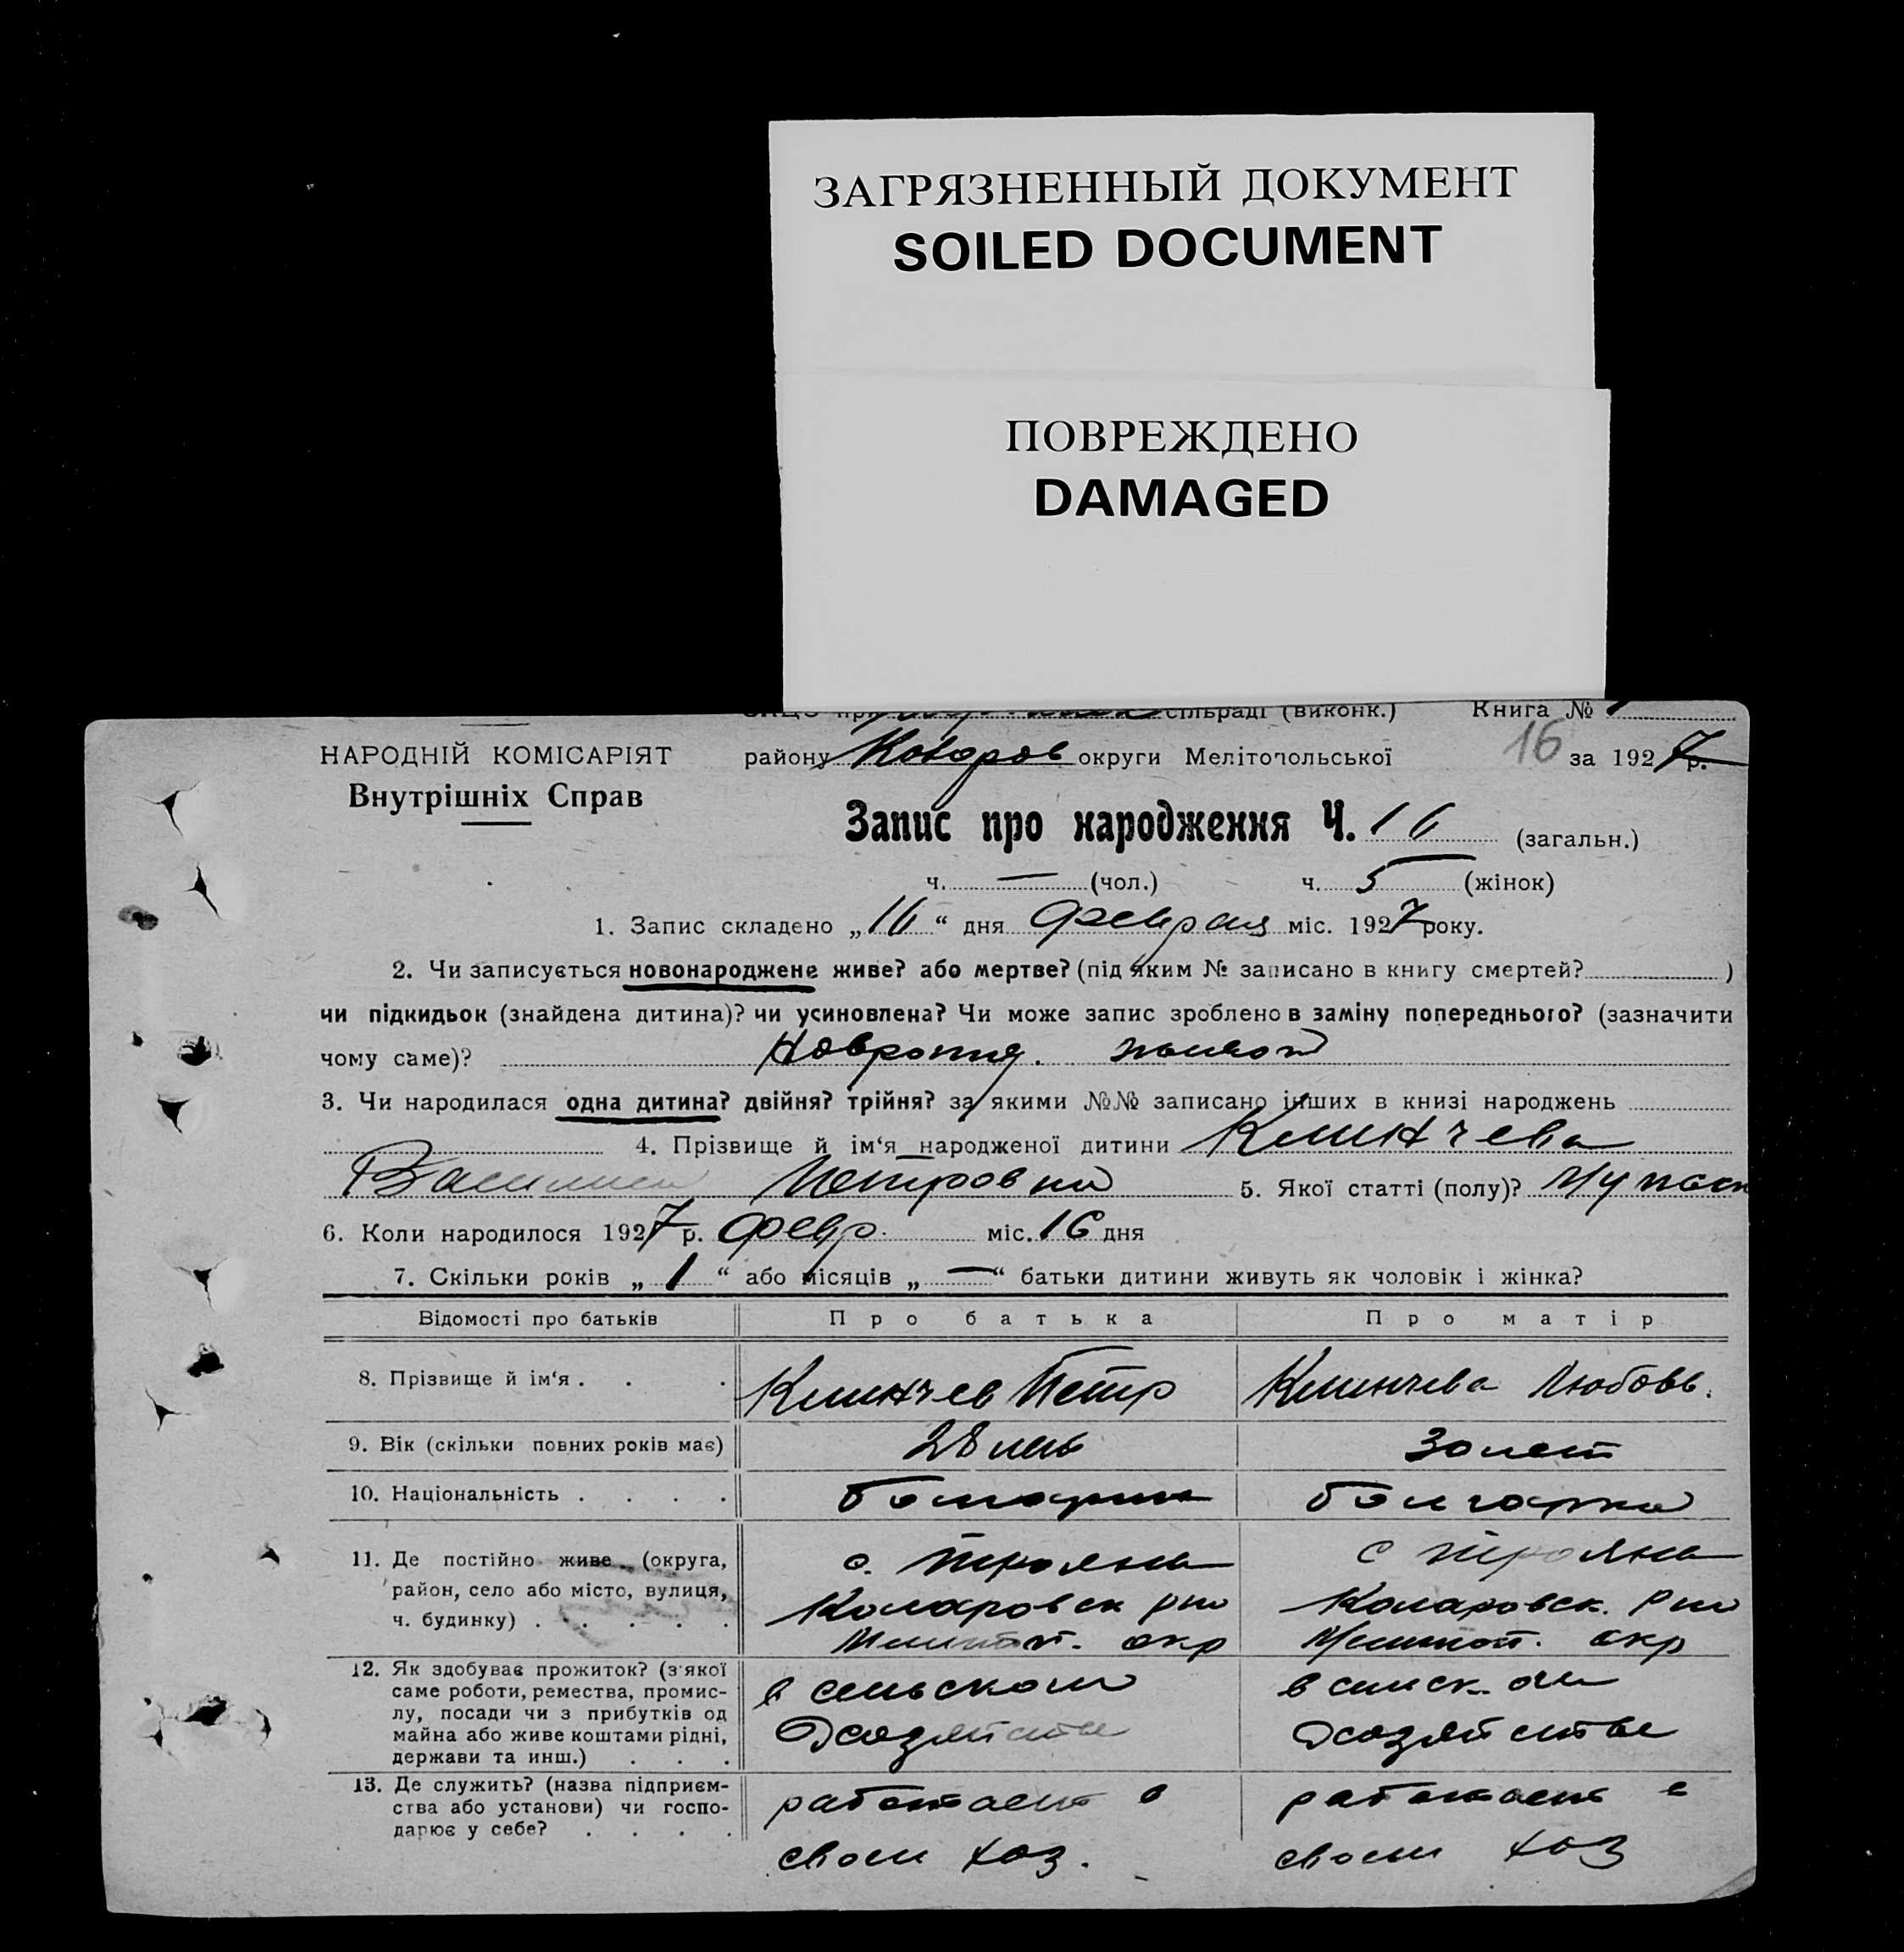 ЗАГРЯЗНЕННЫЙ ДОКУМЕНТ
SOILED DOCUMENT
ПОВРЕЖДЕНО
DAMAGED
сільраді (виконк.) Книга №
НАРОДНІЙ КОМІСАРІЯТ
Внутрішніх Справ
району Коларов округи Мелітопольської 16 за 1927 р.
Запис про народження Ч. 16 (загальн.)
ч. — (чол.) ч. 5 (жінок)
1. Запис складено „16“ дня Февраля міс. 1927 року.
2. Чи записується новонароджене живе? або мертве? (під яким № записано в книгу смертей? )
чи підкидьок (знайдена дитина)? чи усиновлена? Чи може запис зроблено в заміну попереднього? (зазначити
чому саме)?
3. Чи народилася одна дитина? двійня? трійня? за якими №№ записано інших в книзі народжень
4. Прізвище й ім‘я народженої дитини Клинчева
Петровна 5. Якої статті (полу)?
6. Коли народилося 1927 р. февр. міс. 16 дня
7. Скільки років „1“ або місяців „—“ батьки дитини живуть як чоловік і жінка?
Відомості про батьків Про батька Про матір
8. Прізвище й ім‘я . . . Клинчев Петр Клинчева Любовь.
9. Вік (скільки повних років має) 28 лет 30 лет
10. Національність . . . . болгарин болгарка
11. Де постійно живе (округа,
район, село або місто, вулиця,
ч. будинку) . . . . .
с. Трояна
Коларовск р-на
Мелитоп. окр
с Трояна
Коларовск. р-на
Мелитоп. окр
12. Як здобуває прожиток? (з якої
саме роботи, ремества, промис-
лу, посади чи з прибутків од
майна або живе коштами рідні,
держави та инш.) . . .
в сельском
хозяйстве
в сельск.
хозяйстве
13. Де служить? (назва підприєм-
ства або установи) чи госпо-
дарює у себе? . . . .
работает в
своем хоз.
работает в
своем хоз